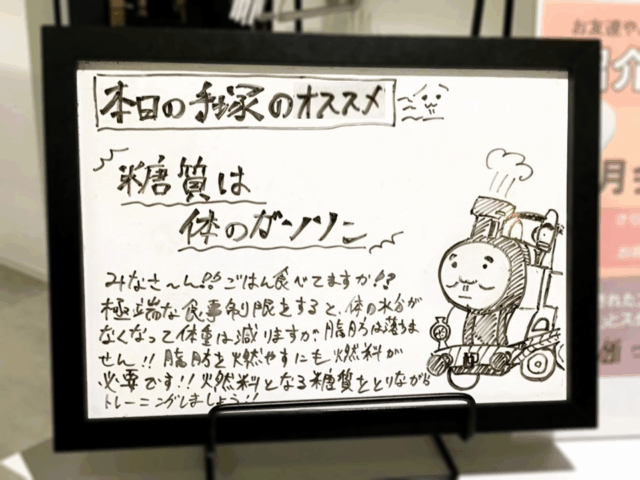 本日の手塚のオススメ
糖質は
体のガソリン
みなさ〜ん!!ごはん食べてますか!?
極端な食事制限をすると、体の水分が
なくなって体重は減りますが、脂肪は落ちま
せん!!脂肪を燃やすにも燃料が
必要です!!燃料となる糖質をとりながら
トレーニングしましょう!!
お友達や
紹介